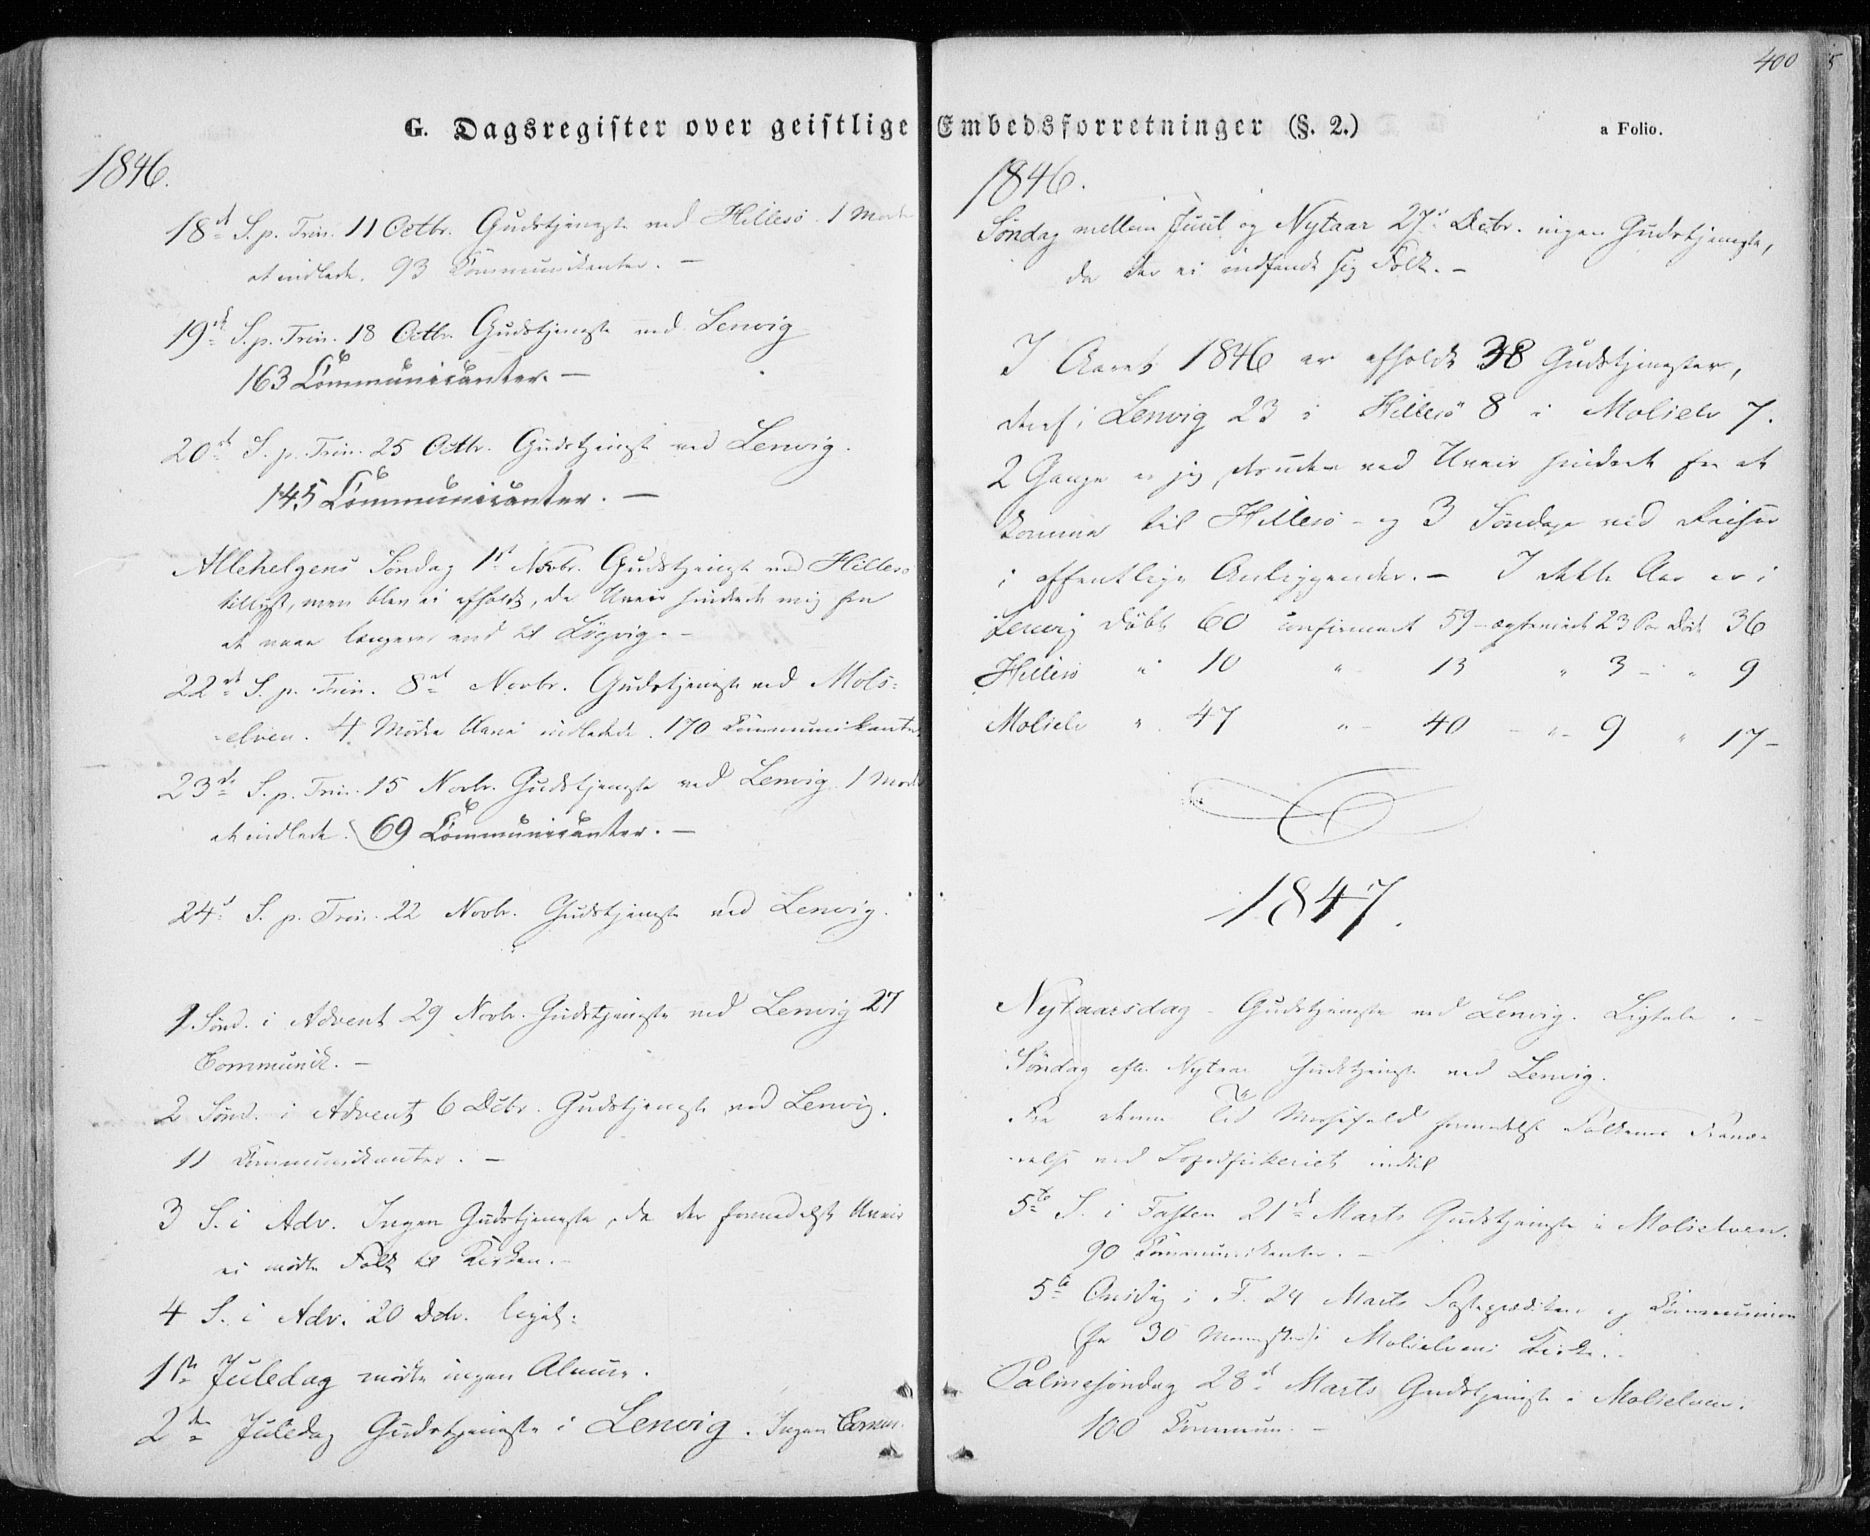 400
G. Dagsregister over geistlige Embedsforretninger (§. 2.)
a Folio.
1846.
18d S. p. Trin. 11 Octbr. Gudstjeneste ved Hillesö. 1 Moder
at indlede. 93 Communikanter. –
19d S. p. Trin. 18 Octbr. Gudstjeneste ved Lenvig
163 Communicanter. –
20d S. p. Trin. 25 Octbr. Gudstjeneste ved Lenvig.
145 Communicanter. –
Allehelgens Søndag 1st Novbr. Gudstjeneste ved Hillesö
tillyst, men blev ei afholdt, da Uveir hindrede mig fra
at naae længere end til
22d S. p. Trin. 8d Novbr. Gudstjeneste ved Mols-
elven. 4 Mødre indledede. 170 Communikanter
23d S. p. Trin. 15 Novbr. Gudstjeneste ved Lenvig. 1 Moder
at indlede. 69 Communicanter. –
24d S. p. Trin. 22 Novbr. Gudstjeneste ved Lenvig.
1 Sønd. i Advent 29 Novbr. Gudstjeneste ved Lenvig 27
Communik. –
2 Sønd. i Advent 6 Dcbr. Gudstjeneste ved Lenvig.
11 Communikanter. –
3 S. i Adv. Ingen Gudstjeneste, da der formedelst Uveir
ei mødte Folk til Kirken. –
4 S. i Adv. 20 Dcbr. ligel:
1ste Juledag mødte ingen Almue.
2den Juledag Gudstjeneste i Lenvig. Ingen Commun.
1846.
Søndag mellem Juul og Nytaar 27d Dcbr. ingen Gudstjeneste,
da der ei indfandt sig Folk. –
I Aaret 1846 er afholdt 38 Gudstjenester,
deraf i Lenvig 23 i Hillesö 8 i Molselv 7.
2 Gange er jeg desuden ved Uveir hindret fra at
komme til Hillesö – og 3 Søndage ved Reiser
i offentlige Anliggender. – I dette Aar er i
Lenvig døbt 60 confirmeret 59 – ægteviede 23 Par døde 36
Hillesö " 10 " 13 " 3 – " 9
Molselv " 47 " – 40 – " – 9 " 17 –
1847.
Nytaarsdag – Gudstjeneste ved Lenvig. Ligtale. –
Søndag efter Nytaar Gudstjeneste ved Lenvig.
Fra denne Tid Messefald formedelst Folkenes Fravæ-
relse ved Lofodfiskeriet indtil
5te S. i Fasten 21d Marts Gudstjeneste i Molselven.
90 Communikanter. –
5te Onsdag i F. 24 Marts Fasteprædiken og Communion
(for 30 Mennesker) i Molselvens Kirke. –
Palmesøndag 28d Marts Gudstjeneste i Molselven.
100 Commun. –